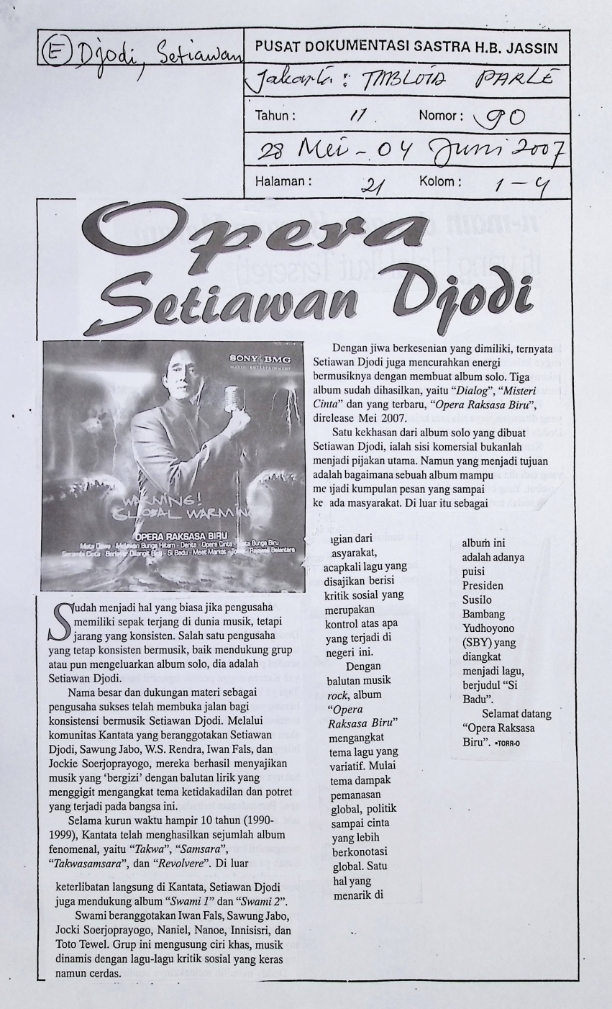 (E) Djodi, Setiawan
PUSAT DOKUMENTASI SASTRA H.B. JASSIN
Jakarta: TABLOID PARLE
Tahun : 11 Nomor : 90
28 Mei - 04 Juni 2007
Halaman : 21 Kolom : 1 - 4
Opera
Setiawan Djodi
SONY BMG
MUSIC ENTERTAINMENT
WARNING!
GLOBAL WARMING
OPERA RAKSASA BIRU
Sudah menjadi hal yang biasa jika pengusaha
memiliki sepak terjang di dunia musik, tetapi
jarang yang konsisten. Salah satu pengusaha
yang tetap konsisten bermusik, baik mendukung grup
atau pun mengeluarkan album solo, dia adalah
Setiawan Djodi.
Nama besar dan dukungan materi sebagai
pengusaha sukses telah membuka jalan bagi
konsistensi bermusik Setiawan Djodi. Melalui
komunitas Kantata yang beranggotakan Setiawan
Djodi, Sawung Jabo, W.S. Rendra, Iwan Fals, dan
Jockie Soerjoprayogo, mereka berhasil menyajikan
musik yang 'bergizi' dengan balutan lirik yang
menggigit mengangkat tema ketidakadilan dan potret
yang terjadi pada bangsa ini.
Selama kurun waktu hampir 10 tahun (1990-
1999), Kantata telah menghasilkan sejumlah album
fenomenal, yaitu "Takwa", "Samsara",
"Takwasamsara", dan "Revolvere". Di luar
keterlibatan langsung di Kantata, Setiawan Djodi
juga mendukung album "Swami 1" dan "Swami 2".
Swami beranggotakan Iwan Fals, Sawung Jabo,
Jocki Soerjoprayogo, Naniel, Nanoe, Innisisri, dan
Toto Tewel. Grup ini mengusung ciri khas, musik
dinamis dengan lagu-lagu kritik sosial yang keras
namun cerdas.
Dengan jiwa berkesenian yang dimiliki, ternyata
Setiawan Djodi juga mencurahkan energi
bermusiknya dengan membuat album solo. Tiga
album sudah dihasilkan, yaitu "Dialog", "Misteri
Cinta" dan yang terbaru, "Opera Raksasa Biru",
direlease Mei 2007.
Satu kekhasan dari album solo yang dibuat
Setiawan Djodi, ialah sisi komersial bukanlah
menjadi pijakan utama. Namun yang menjadi tujuan
adalah bagaimana sebuah album mampu
me jadi kumpulan pesan yang sampai
ke ada masyarakat. Di luar itu sebagai
gian dari
asyarakat,
acapkali lagu yang
disajikan berisi
kritik sosial yang
merupakan
kontrol atas apa
yang terjadi di
negeri ini.
Dengan
balutan musik
rock, album
"Opera
Raksasa Biru"
mengangkat
tema lagu yang
variatif. Mulai
tema dampak
pemanasan
global, politik
sampai cinta
yang lebih
berkonotasi
global. Satu
hal yang
menarik di
album ini
adalah adanya
puisi
Presiden
Susilo
Bambang
Yudhoyono
(SBY) yang
diangkat
menjadi lagu,
berjudul "Si
Badu".
Selamat datang
"Opera Raksasa
Biru". •TORR-O